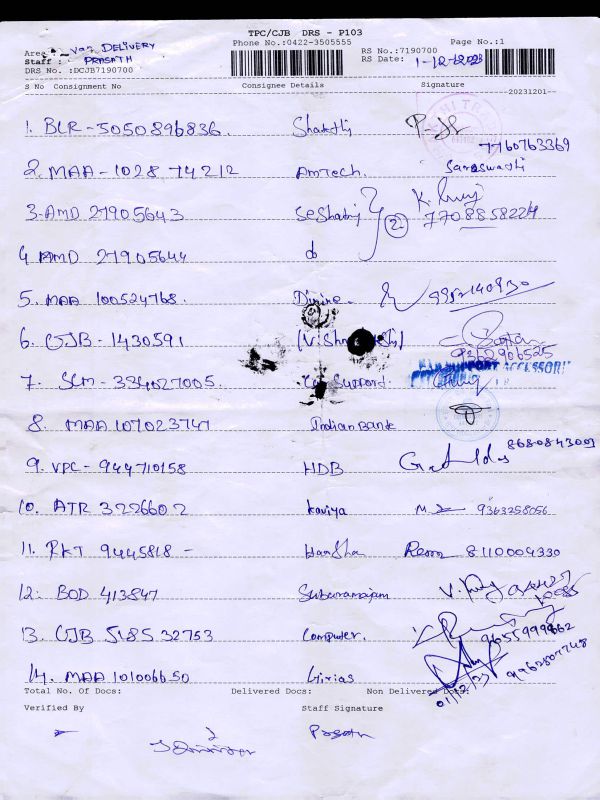 TPC/CJB DRS - P103
Area : Van DELIVERY Phone No.:0422-3505555 RS No.:7190700 Page No.:1
Staff : PRASATH RS Date: 1-12-2023
DRS No. :DCJB7190700
S No Consignment No Consignee Details Signature
20231201
1. BLR - 5050896836. Shakthi
7760763369
2. MAA - 1028 74212 AmTech. Saraswathi
3. AMD 27905643 Seshadri (2) 7708858224
4 AMD 27905644 do
5. MAA 100524768. Divine. 9952140930
6. CJB - 1430591 9362906525
7. SLM - 334027005. Car Support. CAR SUPPORT ACCESSORI
8. MAA 107023747 Indian Bank
9. VPC - 944710158 HDB 8680843009
10. ATR 3226602 Kaviya 9363258056
11. RKT 9445818 - Harsha 8110004330
12. BOD 413847 Subaramajam
13. CJB 5185 32753 Computer. 9655999862
14. MAA 101006650 Girias 9962807748
01/12/23
Total No. Of Docs: Delivered Docs: Non Delivered Docs:
Verified By Staff Signature
Prasath